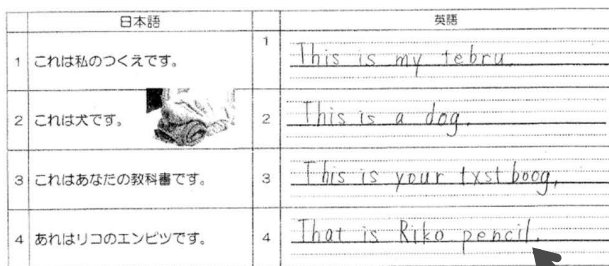 日本語 英語
1 これは私のつくえです。 1 This is my tebru.
2 これは犬です。 2 This is a dog.
3 これはあなたの教科書です。 3 This is your txst boog,
4 あれはリコのエンピツです。 4 That is Riko pencil.